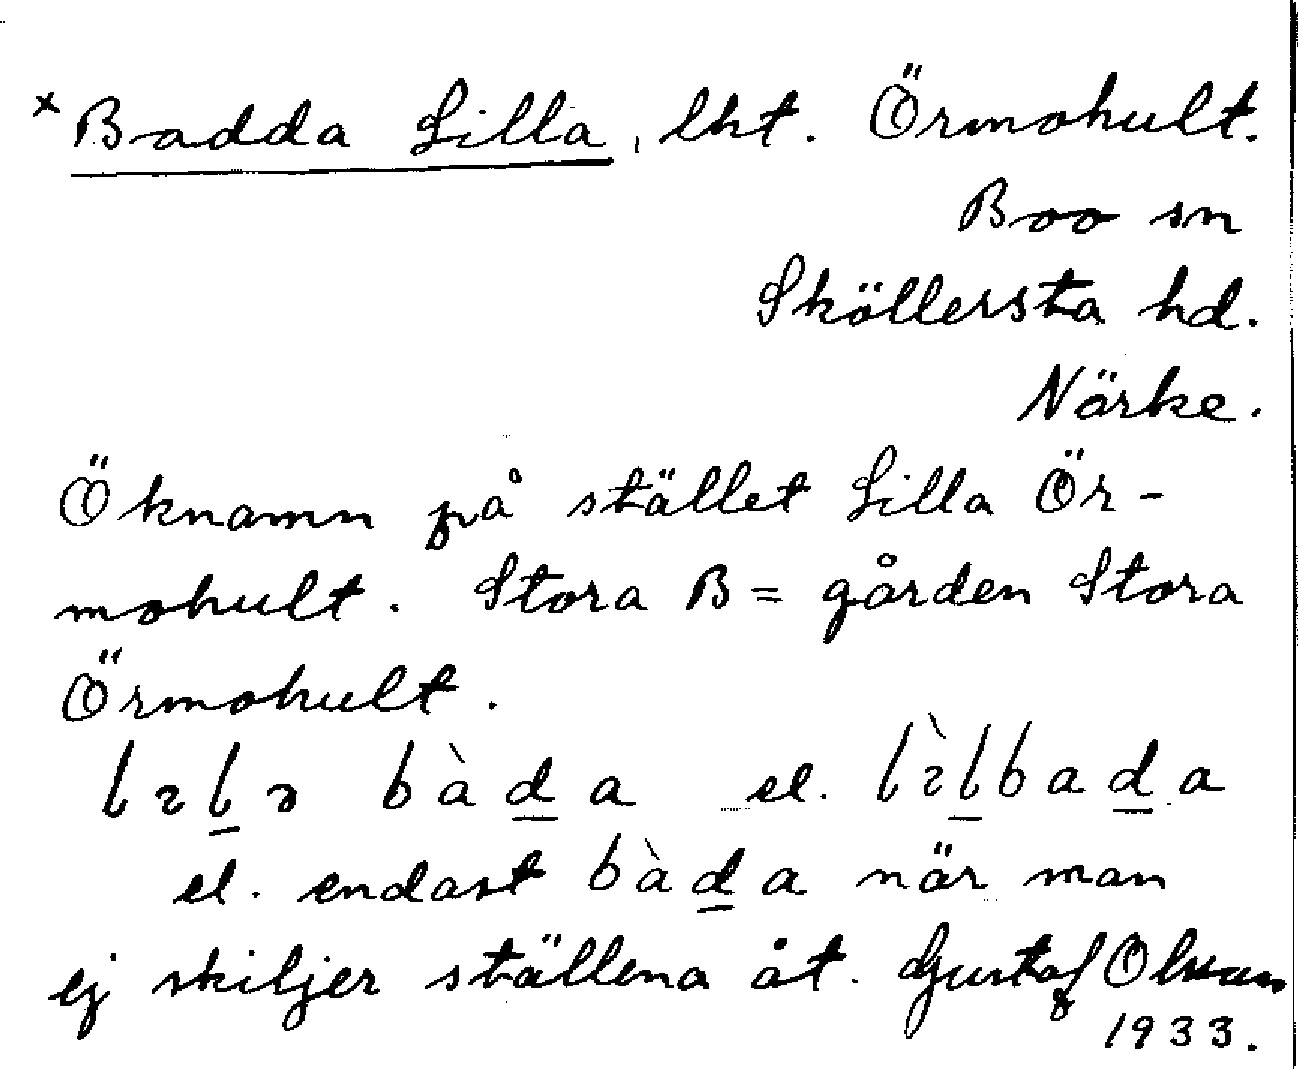 × Badda Lilla, lht. Örmohult.
Boo sn
Sköllersta hd.
Närke.
Öknamn på stället Lilla Ör-
mohult. Stora B = gården Stora
Örmohult.
lɩl̲ə bàd̲a el. lɩ̀l̲bad̲a
el. endast bàd̲a när man
ej skiljer ställena åt. Gustaf Olsson
1933.